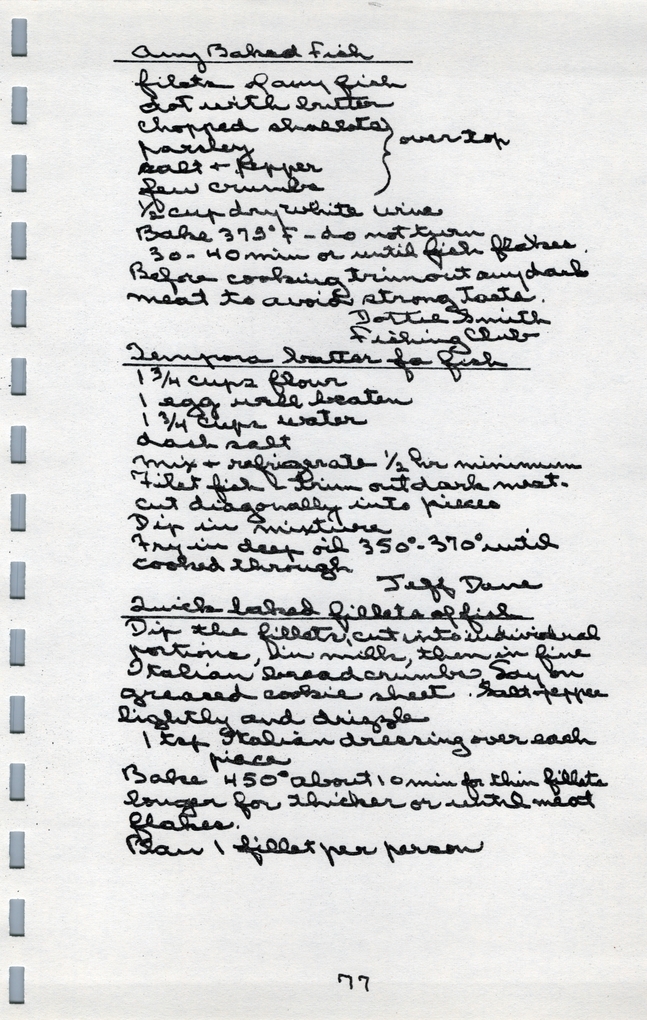 Any Baked Fish
filets of any fish
dot with butter
chopped shallots
parsley
salt + pepper
few crumbs
} over top
1/2 cup dry white wine
Bake 375°F - do not turn
30 - 40 min or until fish flakes.
Before cooking trim out any dark
meat to avoid strong taste.
Dottie Smith
Fishing Club
Tempora batter fo fish
1 3/4 cups flour
1 egg well beaten
1 3/4 cups water
dash salt
mix + refrigerate 1/2 hr minimum
Filet fish & trim out dark meat.
cut diagonally into pieces
Dip in mixture
Fry in deep oil 350°-370° until
cooked through
Jeff Dane
Quick baked fillets of fish
Dip the fillets, cut into individual
portions, in milk, then in fine
Italian bread crumbs. Lay on
greased cookie sheet. Salt + pepper
lightly and drizzle
1 tsp Italian dressing over each
piece
Bake 450° about 10 min for thin fillets
longer for thicker or until meat
flakes.
Plan 1 fillet per person
77